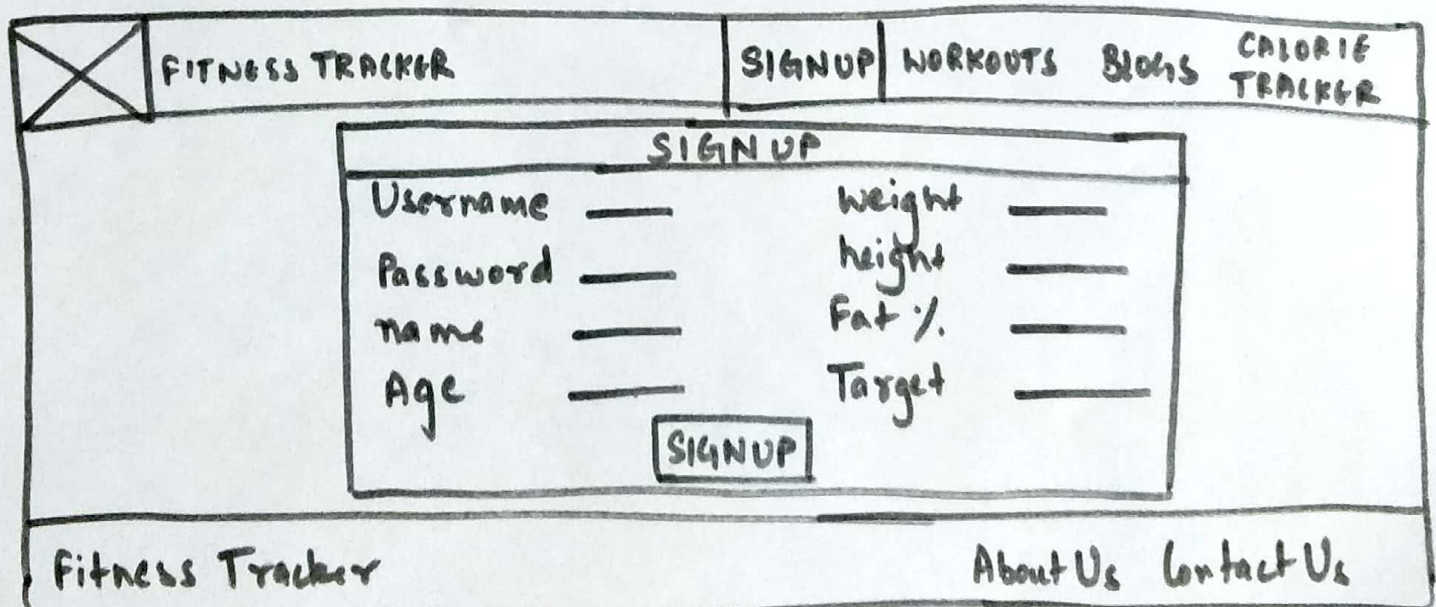 FITNESS TRACKER SIGNUP WORKOUTS BLOGS CALORIE TRACKER
SIGNUP
Username weight
Password height
name Fat %
Age Target
SIGNUP
Fitness Tracker About Us Contact Us